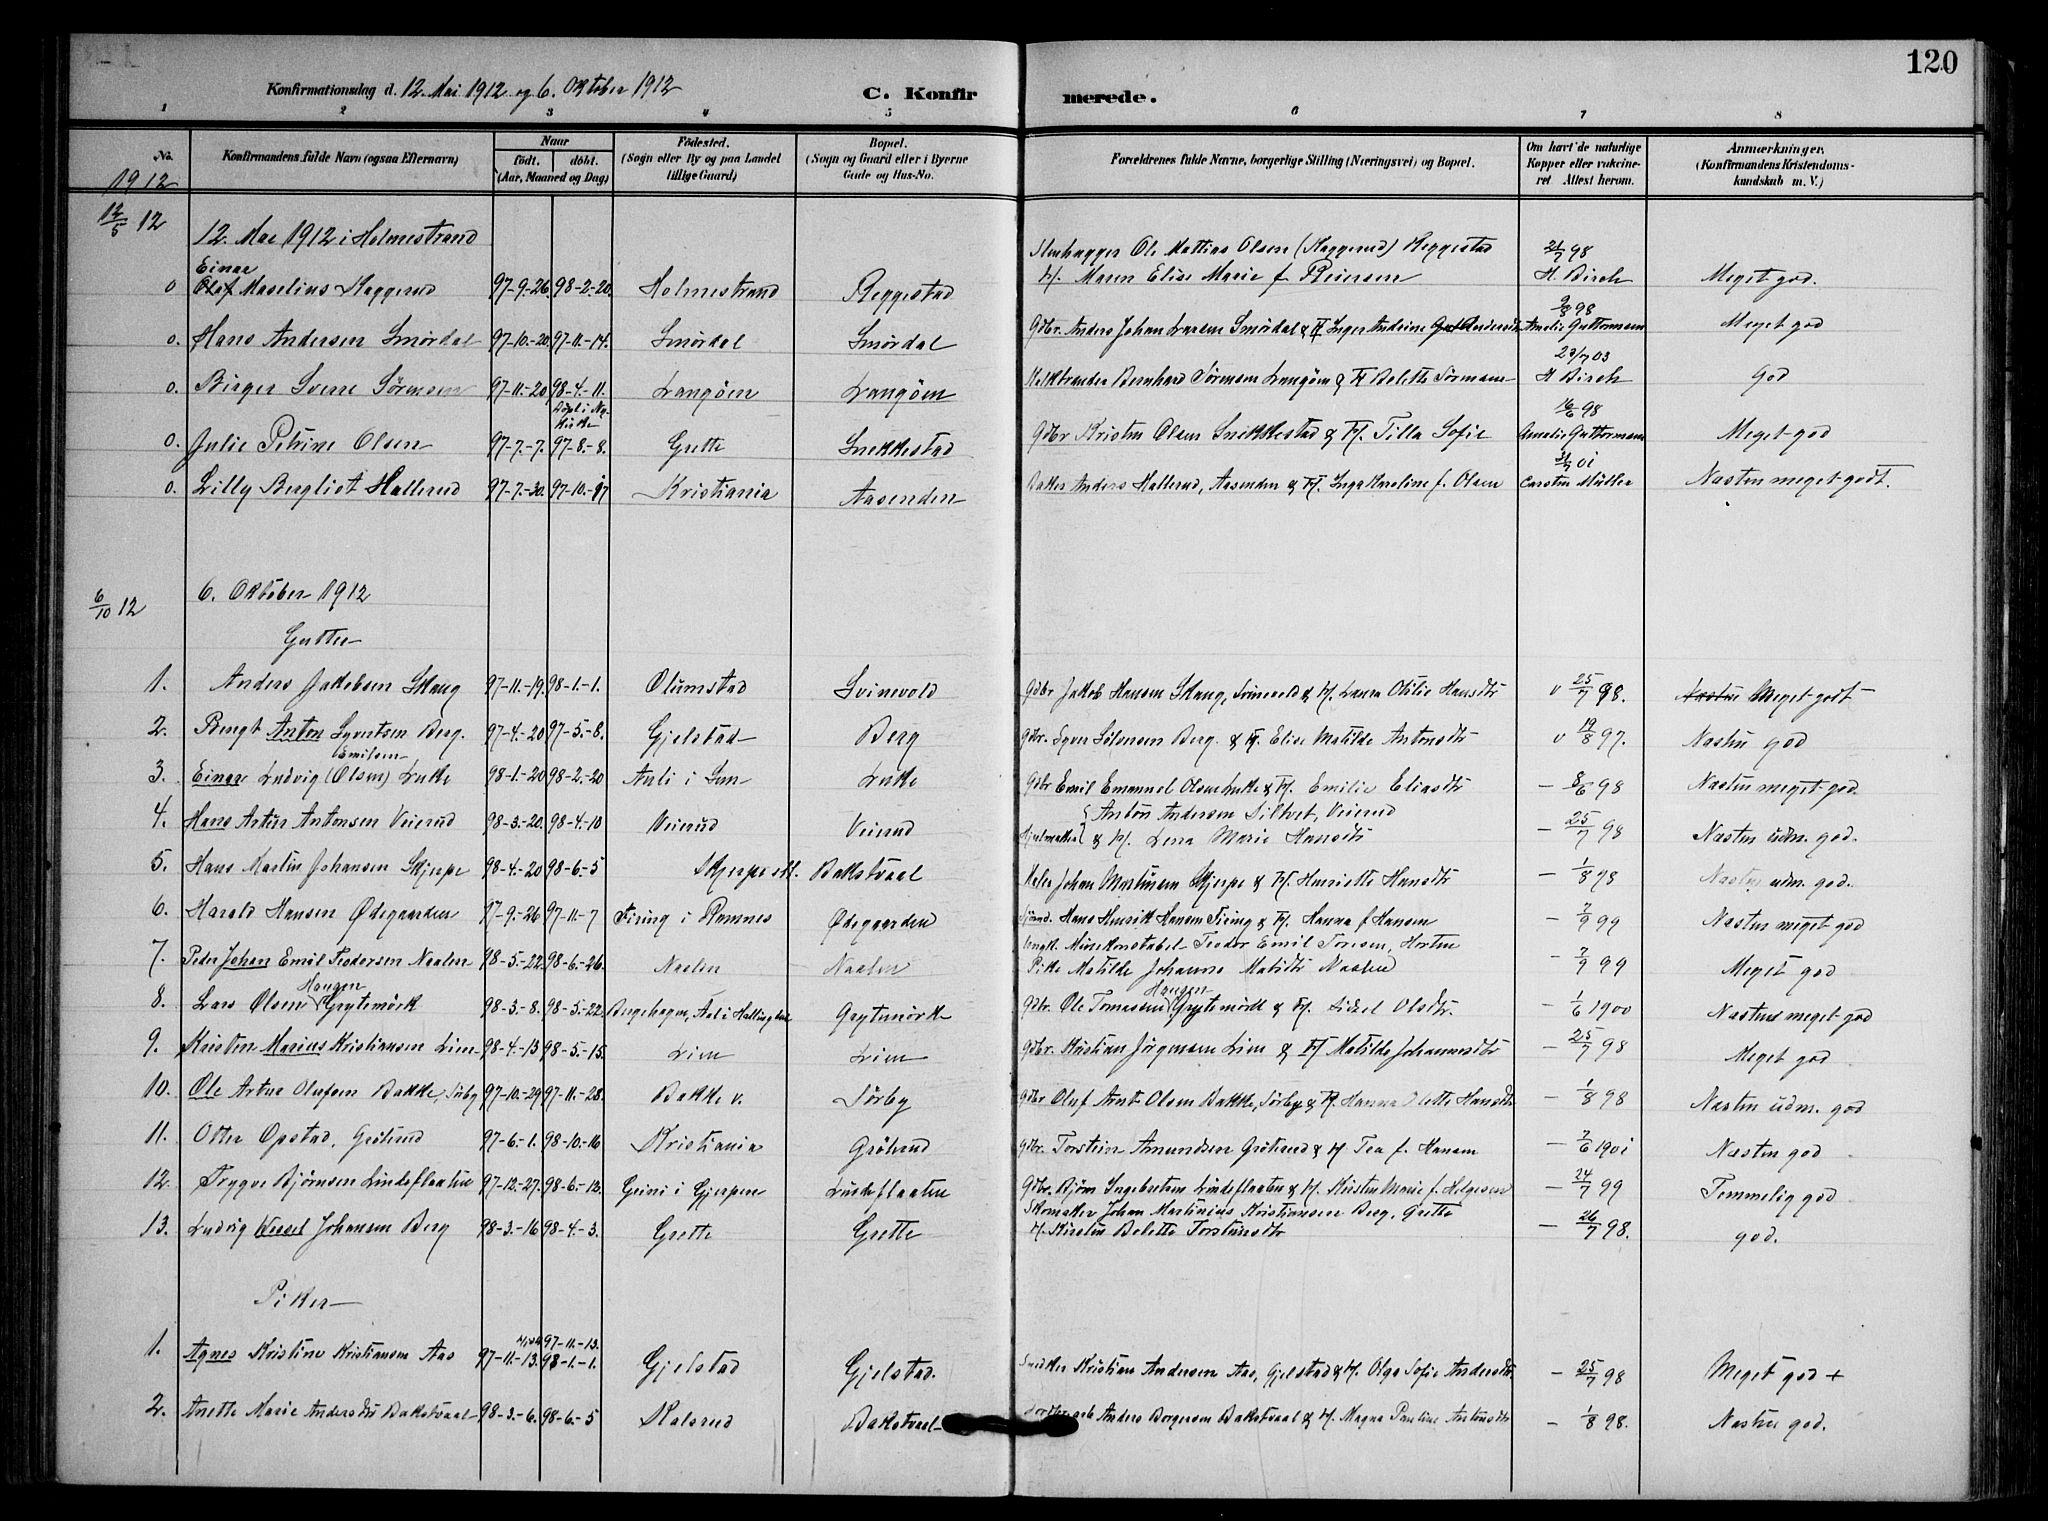 120
Konfirmationsdag d. 12. Mai 1912 og 6. Oktober 1912
C. Konfirmerede.
1 2 3 4 5 6 7 8
No. Konfirmandens fulde Navn (ogsaa Efternavn) Naar født. døbt. (Aar, Maaned og Dag) Fødested. (Sogn eller By og paa Landet tillige Gaard) Bopæl. (Sogn og Gaard eller i Byerne Gade og Hus-No. Forældrenes fulde Navne, borgerlige Stilling (Næringsvei) og Bopæl. Om havt de naturlige Kopper eller vakcineret Attest herom. Anmærkninger. (Konfirmandens Kristendomskundskab m. V.)
1912
12/5 12
12. Mai 1912 i Holmestrand
Stenhugger Ole Mattias Olsen (Haggerud) Reggestad 21/7 98
Einar
0 Olof Maselius Haggerud 97-9-26. 98-2-20. Holmestrand Reggestad H. Maren Elise Marie f. Reiersen H Birch Meget god.
9/8 98
0. Hans Andersen Smørdal 97-10-20. 97-11-14. Smørdal Smørdal Gdbr. Anders Johan Larsen Smørdal & H Inger Andrine Andersdtr Amelie Guttormsen Meget god
23/7 03
0. Birger Sverre Sörensen 97-11-20. 98-4-11. Langöen Langöen Kalkbrænder Bernhard Sörensen Langöen & H Belette Sörensen H Birch God
Döpt i Ny Kirke 16/6 98
0. Julie Petrine Olsen 97-7-7. 97-8-8. Grette Snekkestad Gdbr Kristen Olsen Snekkestad & H. Tilla Sofie Amelie Guttormsen Meget god
0. Lilly Bergliot Hallerud 97-7-30. 97-10-17 Kristiania Aasenden Anders Hallerud, Aasenden & H. Inga Karoline f. Olsen Carsten Müller Næsten meget godt.
6/10 12
6. Oktober 1912
Gutter
1. Anders Jakobsen Skaug 97-11-19. 98-1-1. Olumstad Svinevold Gdbr Jakob Hansen Skaug, Svinevold & H. Laura Otilie Hansdtr v 25/7 98. Næsten Meget godt
2. Bengt Anton Syvertsen Berg. 97-4-20 97-5-8. Gjelstad Berg Gdbr. Syver Sörensen Berg & H. Elise Matilde Antonsdtr v 19/8 97. Næsten god
Emilsen
3. Einar Ludvig (Olsen) Lukke 98-1-20 98-2-20 Auli i Sem Lukke Gdbr Emil Emanuel Olsen Lukke & H. Emilie Eliasdtr – 8/6 98 Næsten meget god.
{Anton Andersen Siltvet, Veierud
4. Hans Artur Antonsen Veierud 98-3-20. 98-4-10 Veierud Veierud Hjulmaker & H. Lena Marie Hansdtr – 25/7 98 Næsten udm. god.
5. Hans Martin Johansen Skjerpe 98-4-20 98-6-5 Skjerpe Bakstvaal Maler Johan Martinsen Skjerpe & H. Henriette Hansdtr – 1/8 98 Næsten udm. god.
6. Harald Hansen Ødegaarden 97-9-26 97-11-7 Firing i Ramnes Ødegaarden Sjömd. Hans Henrik Hansen Firing & H. Hanna f Hansen – 7/9 99 Næsten meget god
Ungk. Minekonstabel Teodor Emil Toresen, Horten
7. Peder Johan Emil Teodorsen Naalen 98-5-22 98-6-26. Naalen Naalen Pike Matilde Johanne Matisdtr Naalen – 7/9 99 Meget god
Haugen Haugen
8. Lars Olsen Grytemörk 98-3-8. 98-5-22. Bergehagen, Aal i Hallingdal Grytemörk Gdbr. Ole Tomassen Grytemörk & H. Sidsel Olsdtr. – 1/6 1900 Næsten meget god
9. Kristen Marius Kristiansen Lim 98-4-13 98-5-15. Lim Lim Gdbr. Kristian Jörgensen Lim & H Matilde Johannesdtr – 25/7 98 Meget god
10. Ole Artur Olufsen Bakke, Sørby 97-10-29 97-11-28. Bakke v. Sørby Gdbr Oluf Ant. Olsen Bakke, Sørby & H. Hanna Olette Hansdtr – 1/8 98 Næsten udm. god
11. Otter Opstad, Grötrud 97-6-1. 98-10-16 Kristiania Grötrud Gdbr. Torstein Amundsen Grötrud & H Tea f. Hansen – 7/6 1901 Næsten god
12. Trygve Björnsen Lindeflaaten 97-12-27. 98-6-13. Grini i Gjerpen Lindeflaaten Gdbr. Björn Ingebretsen Lindeflaaten & H. Kirsten Marie f. Helgesen – 24/7 99 Temmelig god
Skomaker Johan Martinius Kristiansen Berg, Grette
13. Ludvig Wessel Johansen Berg 98-3-16 98-4-3. Grette Grette H. Kirstin Belette Torstensdtr – 26/7 98. god.
Piker
97-11-13.
1. Agnes Kristine Kristiansen Aas 97-11-13. 98-1-1. Gjelstad Gjelstad. Snedker Kristian Andersen Aas, Gjelstad & H. Olga Sofie Andersdtr – 25/7 98 Meget god +
2. Anette Marie Andersdtr Bakstvaal 98-3-6. 98-6-5 Halsrud Bakstvaal Anders Borgersen Bakstvaal & H. Magna Pauline Antonsdtr – 1/8 98. Næsten god.